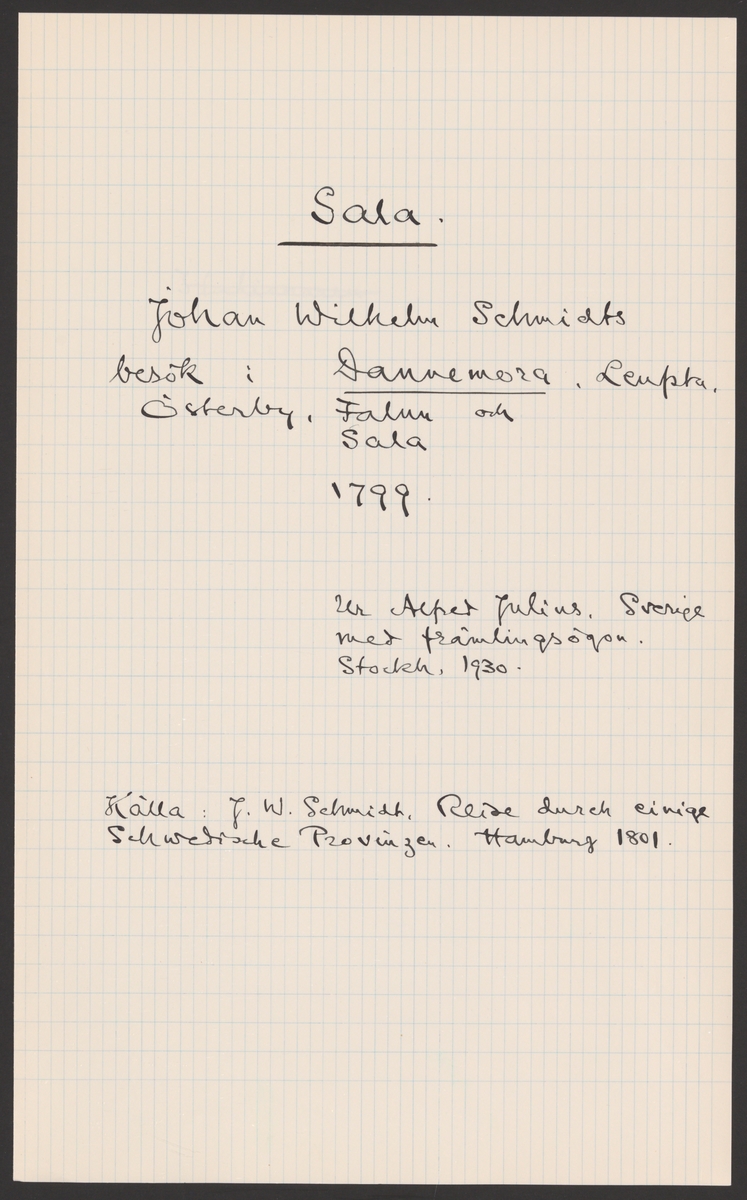 Sala.
Johan Wilhelm Schmidts
besök i Dannemora, Leufsta,
Österby, Falun och
Sala
1799.
Ur Alfred Julius, Sverige
med främlingsögon.
Stockh, 1930.
Källa: J. W. Schmidt, Reise durch einige
Schwedische Provinzen. Hamburg 1801.